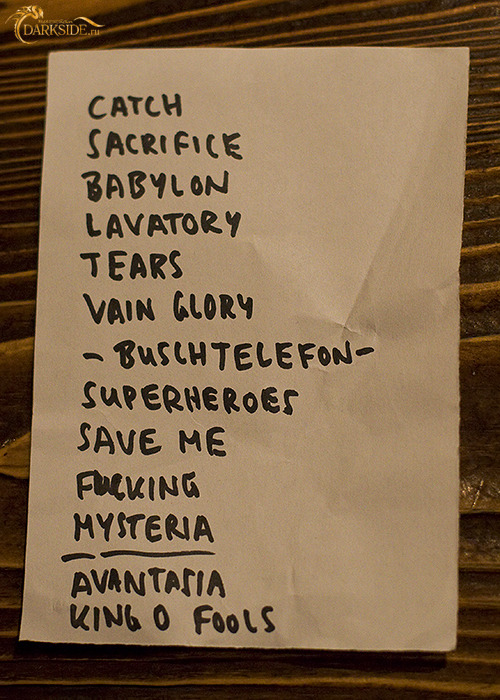 DARKSIDE.ru
CATCH
SACRIFICE
BABYLON
LAVATORY
TEARS
VAIN GLORY
- BUSCHTELEFON-
SUPERHEROES
SAVE ME
FUCKING
MYSTERIA
AVANTASIA
KING O FOOLS